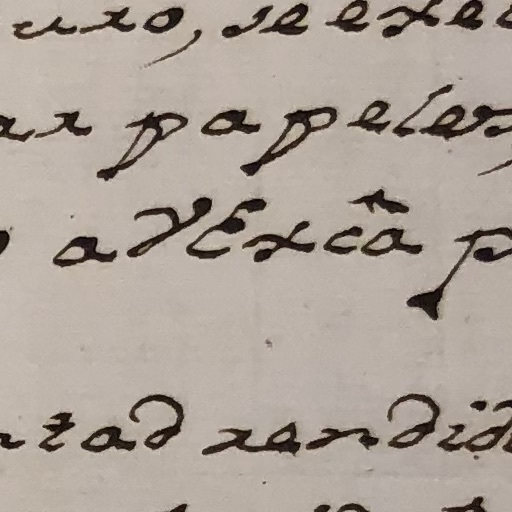 uro, se exec
ar papeles,
a VExcâ p
ntad rendid